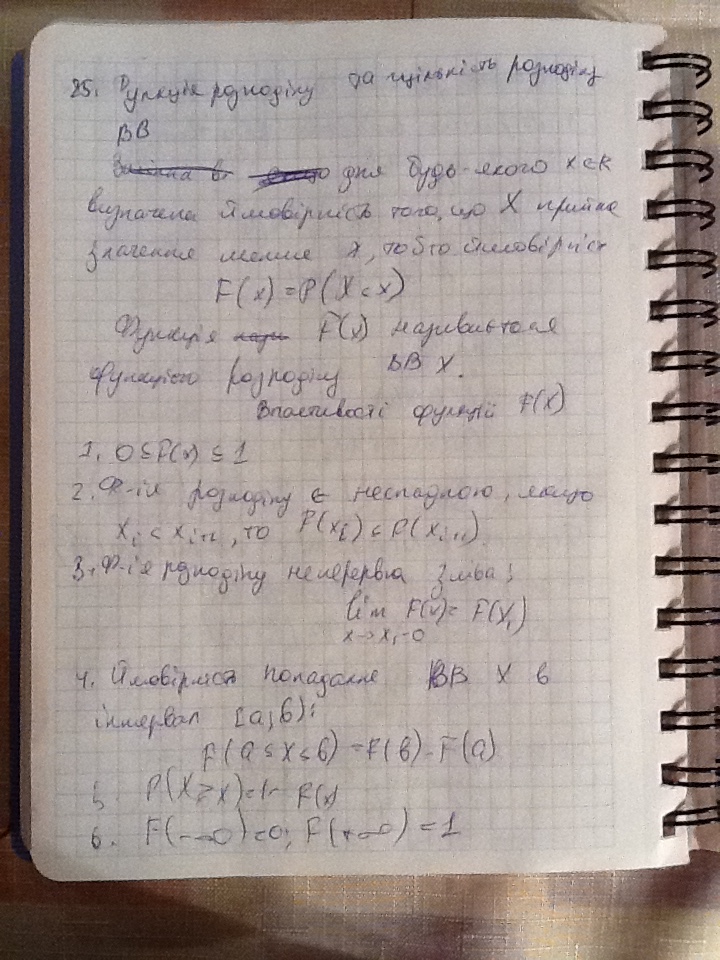 25. Функція розподілу та щільність розподілу
ВВ
для будь-якого x∈R
визначена ймовірність того, що X прийме
значення менше x, тобто ймовірність
F(x) = P(X<x)
Функція F(x) називається
функцією розподілу ВВ X.
Властивості функції F(x)
1. 0≤F(x)≤1
2. Ф-ія розподілу є неспадною, якщо
xi < xi+1, то F(xi) ≤ F(xi+1)
3. Ф-ія розподілу неперервна зліва:
lim F(x) = F(xi)
x→xi-0
4. Ймовірність попадання ВВ X в
інтервал [a;b):
P(a≤X<b) = F(b)-F(a)
5. P(X≥x)=1-F(x)
6. F(-∞)=0; F(+∞)=1